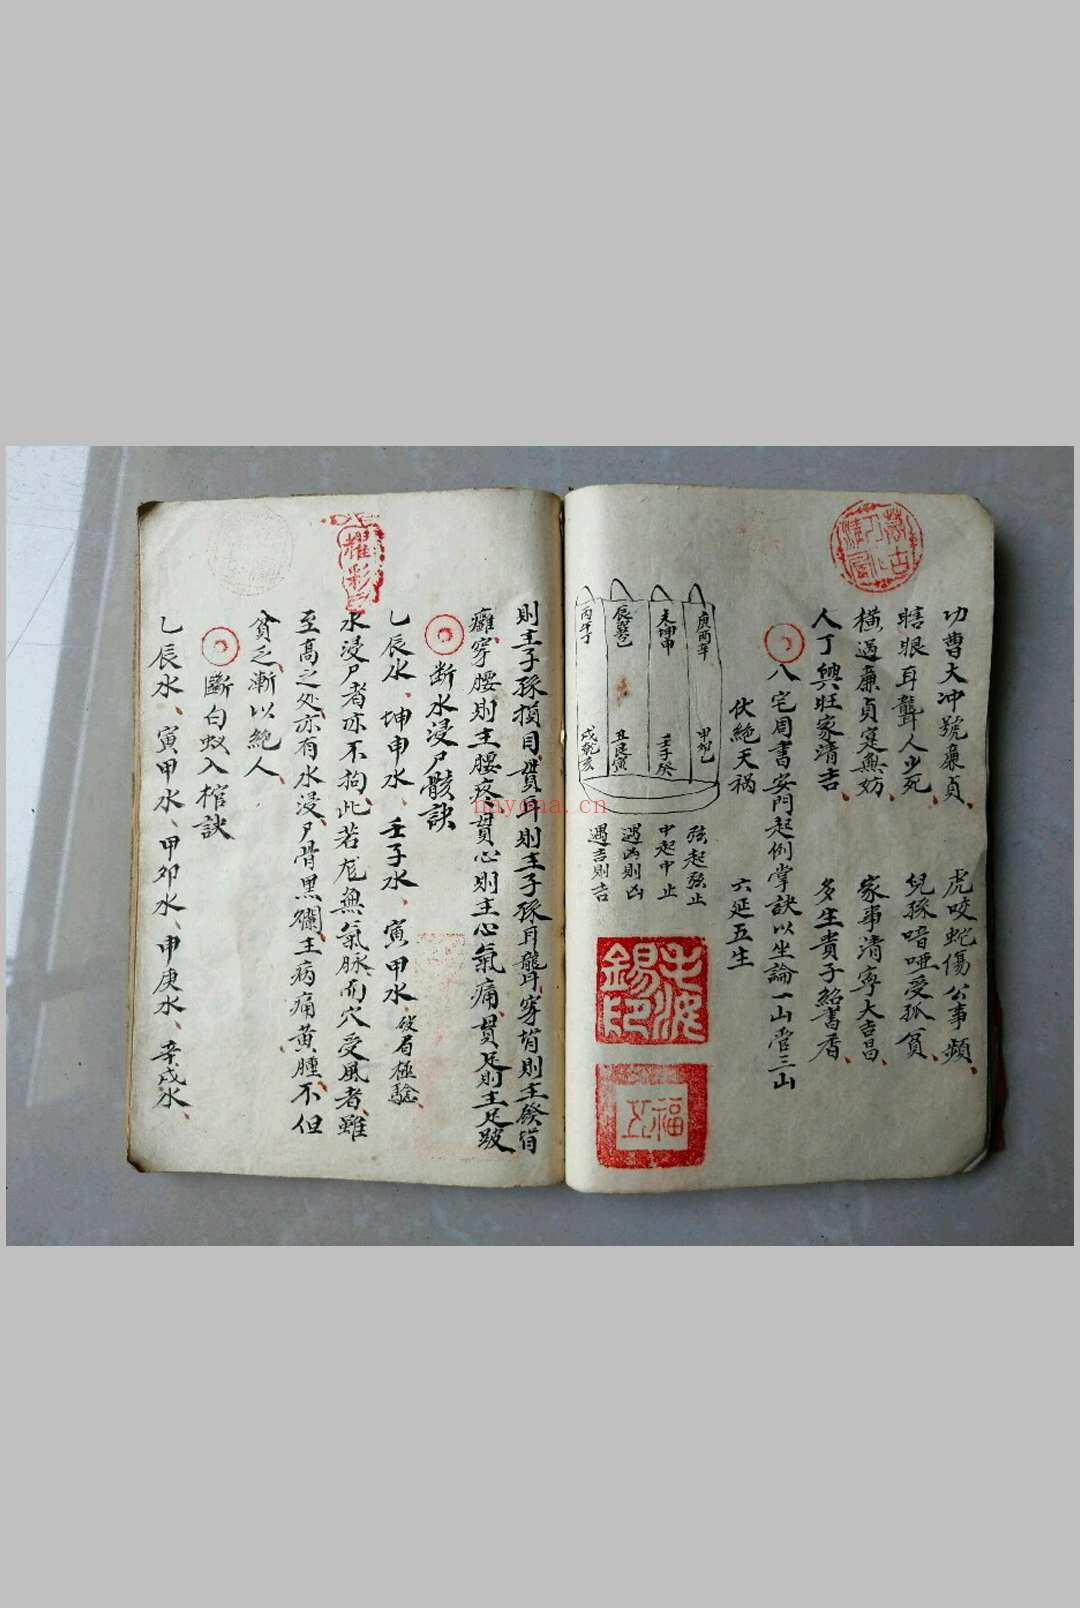 功曹大冲號廉貞 虎咬蛇傷公事頻
瞎眼耳聾人少死 兒孫喑啞受孤貧
橫過廉貞寔無妨 家事清寧大吉昌
人丁興旺家清吉 多生貴子紹書香
八宅周書安門起例掌訣以坐論一山管三山
伏絶天禍 六延五生
庚酉辛 甲卯乙
未坤申 壬子癸
辰巽巳 丑艮寅
丙午丁 戌乾亥
弦起弦止
中起中止
遇凶則凶
遇吉則吉
錫印
福
則主子孫損目貫耳則主子孫耳聾穿背則主發背
癰穿腰則主腰疼貫心則主心氣痛貫足則主足跛
断水浸尸骸訣
乙辰水、坤申水、壬子水、寅甲水 破局極驗
水浸尸者亦不拘此若尨無氣脉而穴受風者雖
至高之处亦有水浸尸骨黑爛主病痛黄腫不但
貧乏漸以絶人
斷白蚁入棺訣
乙辰水、寅甲水、甲卯水、申庚水、辛戌水
耀彩
hnyena.cn